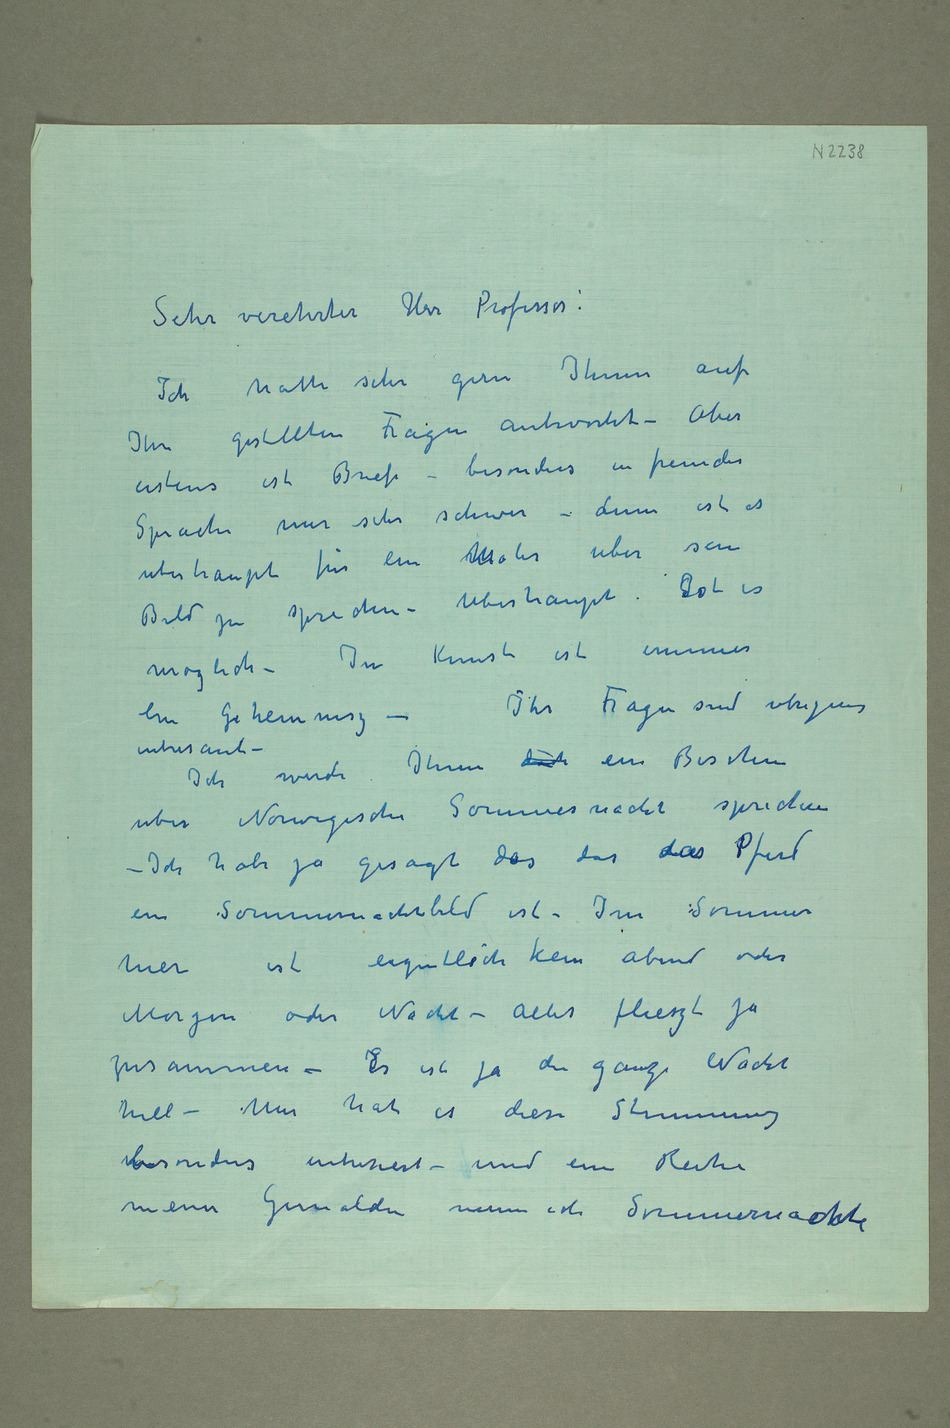 N 2238
Sehr verehrter Herr Professor!
Ich hatte sehr gern Ihnen auf
Ihre gestellten Fragen antwortet – Aber
erstens ist Briefe – besonders in fremder
Sprache mir sehr schwer – denn ist es
uberhaupt für ein Maler uber sein
Bild zu sprechen – Uberhaupt. Ist es
moglich – In Kunst ist immer
ein Geheimnisz – Ihr Fragen sind ubrigens
intresant –
Ich werde Ihnen ein Bischen
uber Norwegische Sommernacht sprechen
– Ich habe ja gesagt das das das Pferd
ein Sommernachtbild ist – Im Sommer
hier ist eigentlich kein abend oder
Morgen oder Nacht – Alles flieszt ja
zusammen – Es ist ja die ganze Nacht
hell – Mir hat es diese Stimmung
besonders intresiert – und eine Reihe
meiner Gemalden nenne ich Sommernachte